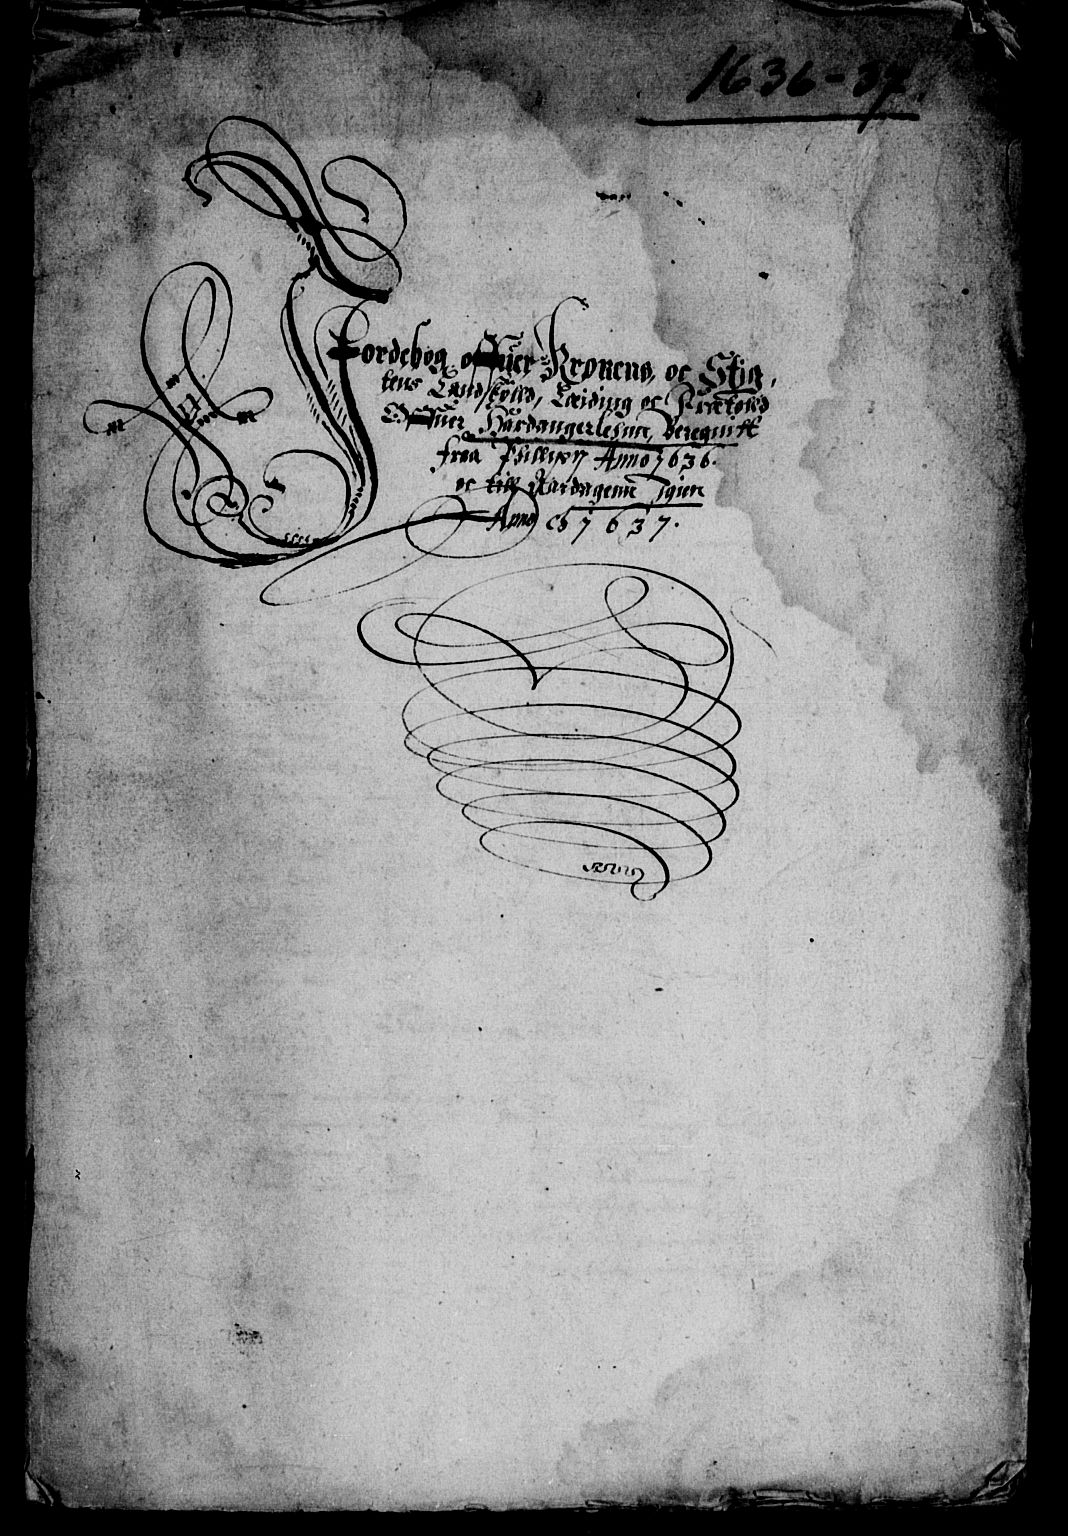 1636-37.
Jordebog offuer Kronens, oc Stig,
tens Landskÿld, Leiding oc
Offuer Hardangerlehnn, Beregnitt
fraa Phillippi Anno 1636.
oc till Aardagenn Igien
Anno 1637.